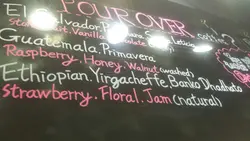 POUR OVER
El Salvador
Vanilla
Guatemala. Primavera
Raspberry. Honey. Walnut (washed)
Ethiopian. Yirgacheffe. Banko Dhadhato
Strawberry. Floral. Jam (natural)